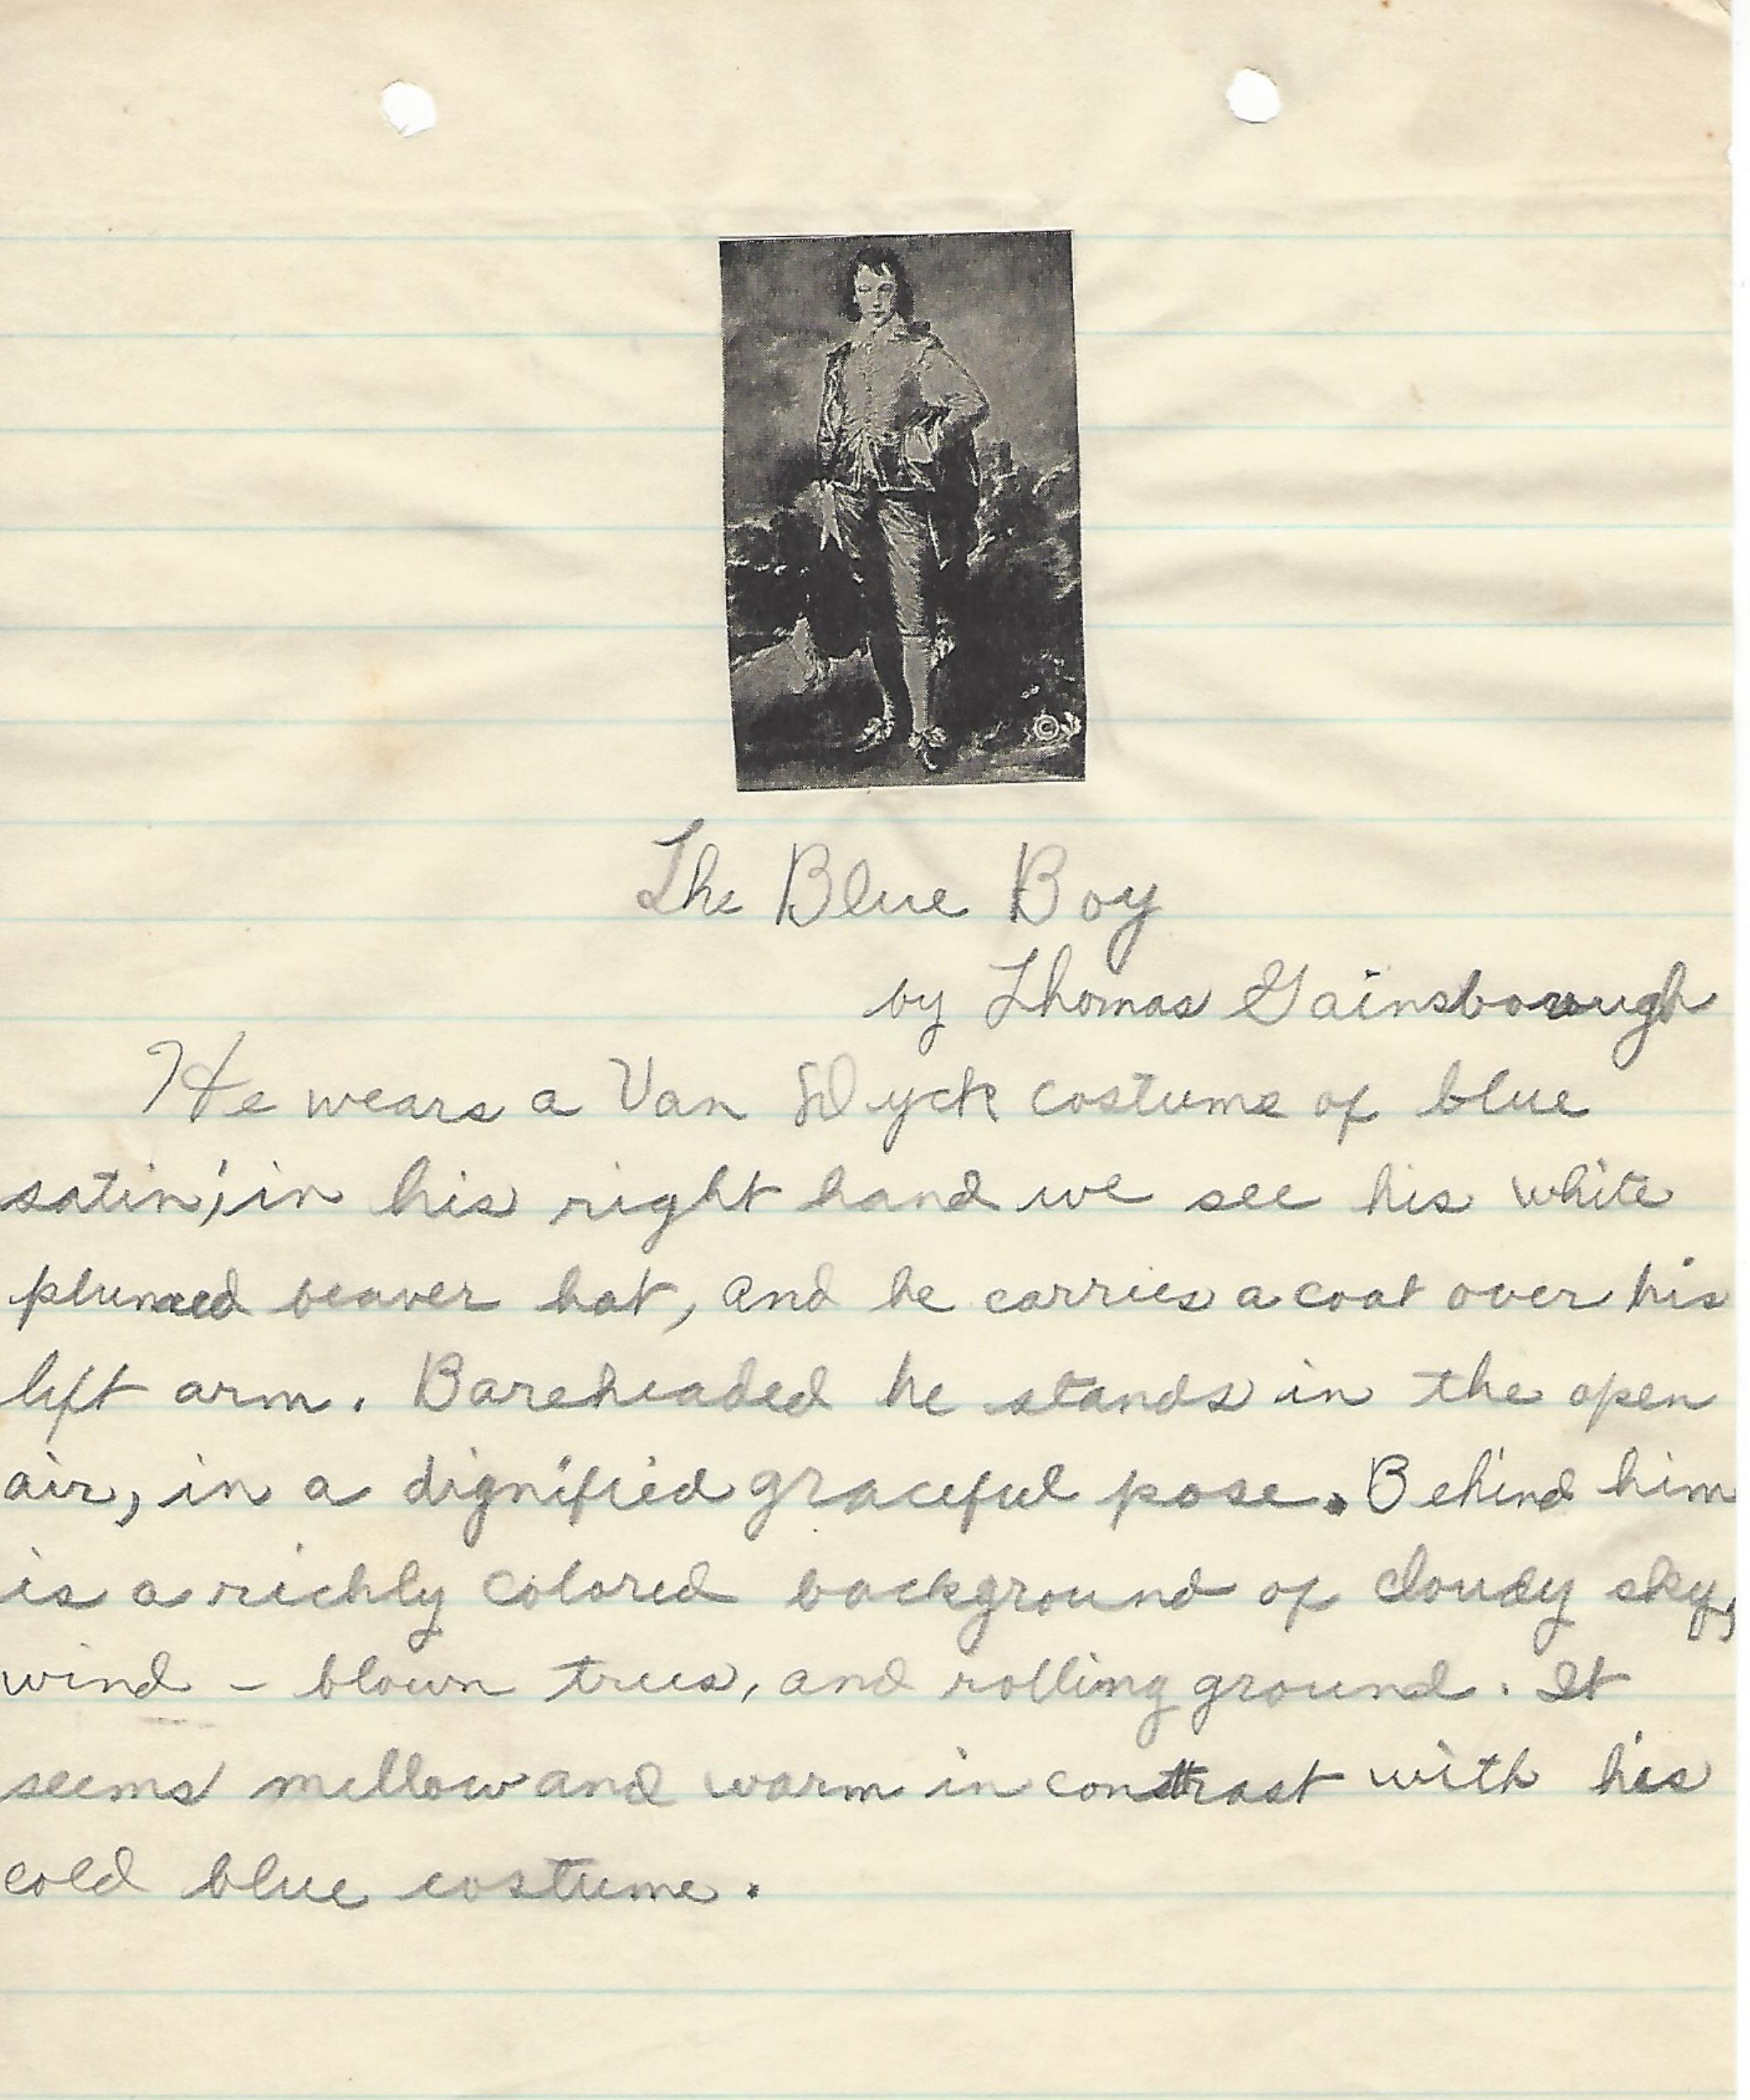 ©
The Blue Boy
by Thomas Gainsborough
He wears a Van Dyck costume of blue
satin; in his right hand we see his white
plumed beaver hat, and he carries a coat over his
left arm. Bareheaded he stands in the open
air, in a dignified graceful pose. Behind him
is a richly colored background of cloudy sky,
wind - blown trees, and rolling ground. It
seems mellow and warm in contrast with his
cold blue costume.